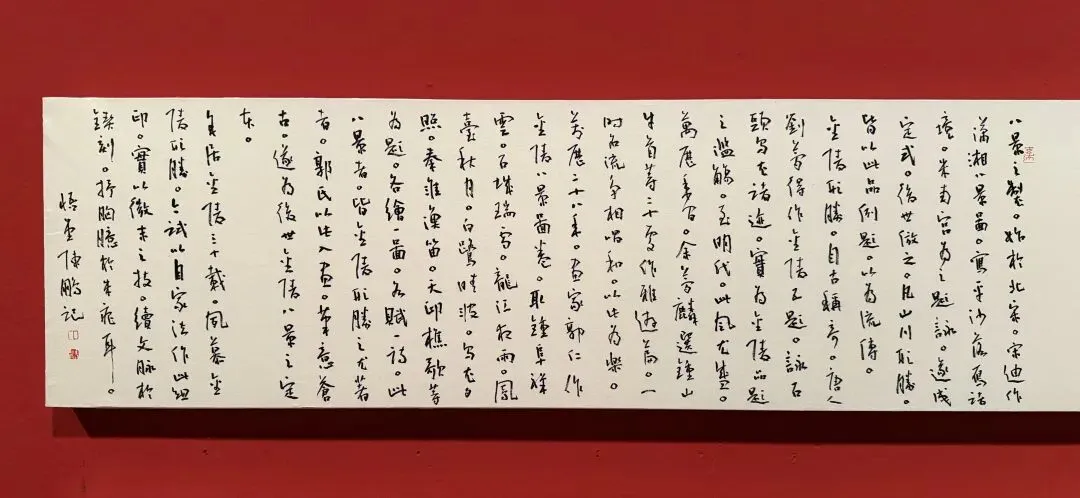 八景之製。始於北宋。宋迪作
瀟湘八景圖。寫平沙落雁諸
境。米南宮為之題詠。遂成
定式。後世倣之。凡山川形勝。
皆以此品例題。以為流傳。
金陵形勝。自古稱奇。唐人
劉夢得作金陵五題。詠石
頭烏衣諸迹。實為金陵品題
之濫觴。至明代。此風尤盛。
萬歷年間。余夢麟選鍾山
牛首等二十景作雅遊篇。一
時名流爭相唱和。以此為樂。
萬歷二十八年。畫家郭仁作
金陵八景圖卷。取鍾阜祥
雲。石城瑞雪。龍江夜雨。鳳
臺秋月。白鷺晴波。烏衣夕
照。秦淮漁笛。天印樵歌等
為題。各繪一圖。各賦一詩。此
八景者。皆金陵形勝之尤著
者。郭氏以此入畫。筆意蒼
古。遂為後世金陵八景之定
本。
余居金陵三十載。夙慕金
陵形勝。今試以自家法作此組
印。實以微末之技。續文脈於
鍥刻。抒胸臆於朱耳。
悟堂陳鵬記